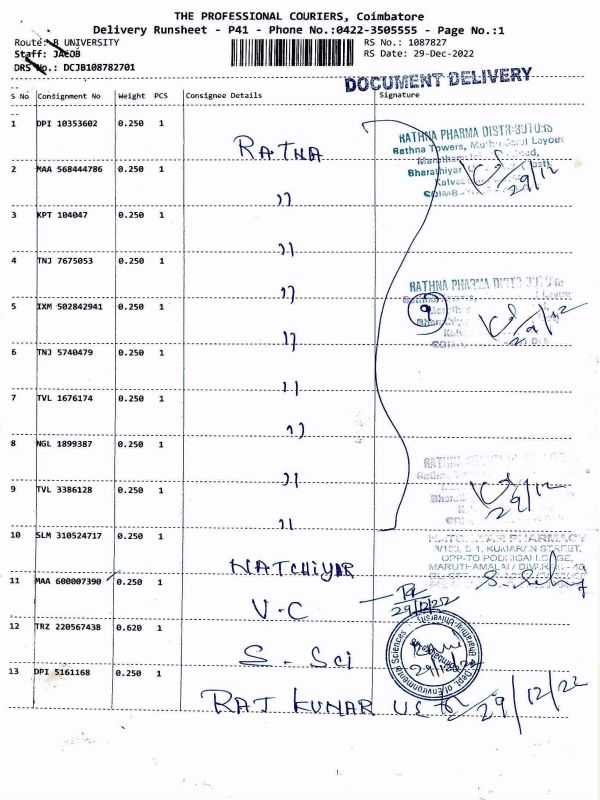 THE PROFESSIONAL COURIERS, Coimbatore
Delivery Runsheet - P41 - Phone No.:0422-3505555 - Page No.:1
Route: B UNIVERSITY
RS No.: 1087827
Staff: JACOB
RS Date: 29-Dec-2022
DRS No.: DCJB108782701
DOCUMENT DELIVERY
S No Consignment No Weight PCS Consignee Details Signature
1 DPI 10353602 0.250 1
RATNA
RATHNA PHARMA DISTRIBUTORS
Rathna Towers,
29/12
2 MAA 568444786 0.250 1
"
3 KPT 104047 0.250 1
"
4 TNJ 7675053 0.250 1
"
RATHNA PHARMA DISTRIBUTORS
9
5 IXM 502842941 0.250 1
"
6 TNJ 5740479 0.250 1
"
7 TVL 1676174 0.250 1
"
8 NGL 1899387 0.250 1
"
29/12
9 TVL 3386128 0.250 1
"
10 SLM 310524717 0.250 1
NATCHIYAR
PHARMACY
11 MAA 600007390 0.250 1
V.C
29/12/22
12 TRZ 220567438 0.620 1
S. Sci
Dept. of Environmental Sciences
Bharathiar University
13 DPI 5161168 0.250 1
RAJ KUNAR
29/12/22